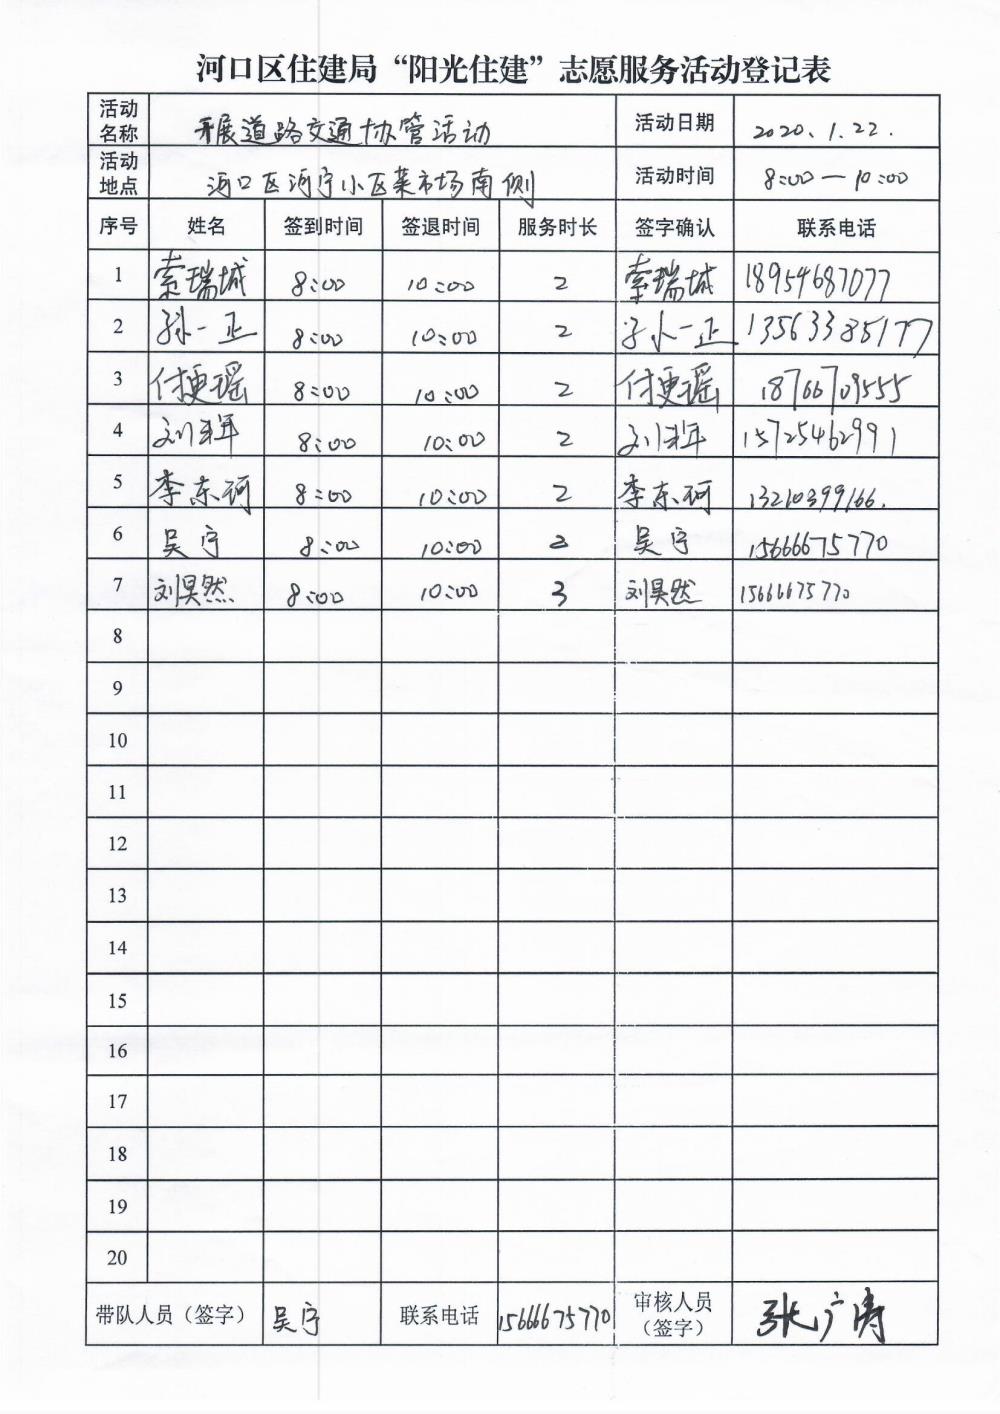 河口区住建局“阳光住建”志愿服务活动登记表
活动名称 开展道路交通协管活动 活动日期 2020.1.22.
活动地点 河口区河宁小区菜市场南侧 活动时间 8:00—10:00
序号 姓名 签到时间 签退时间 服务时长 签字确认 联系电话
1 索瑞城 8:00 10:00 2 索瑞城 18954687077
2 孙一正 8:00 10:00 2 孙一正 13563385177
3 付更瑶 8:00 10:00 2 付更瑶 18766709555
4 刘 8:00 10:00 2 刘 15725462991
5 李东珂 8:00 10:00 2 李东珂 13210399166.
6 吴宁 8:00 10:00 2 吴宁 15666675770
7 刘昊然 8:00 10:00 3 刘昊然 15666675770
8
9
10
11
12
13
14
15
16
17
18
19
20
带队人员（签字） 吴宁 联系电话 15666675770 审核人员（签字） 张广涛